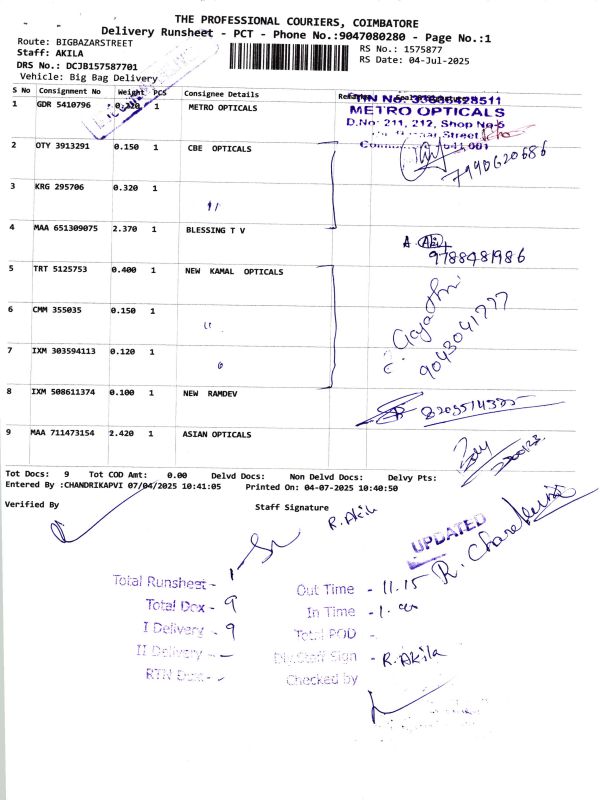 THE PROFESSIONAL COURIERS, COIMBATORE
Delivery Runsheet - PCT - Phone No.:9047080280 - Page No.:1
Route: BIGBAZARSTREET
RS No.: 1575877
Staff: AKILA
RS Date: 04-Jul-2025
DRS No.: DCJB157587701
Vehicle: Big Bag Delivery
S No Consignment No Weight PCS Consignee Details
1 GDR 5410796 PCS 1 METRO OPTICALS
TIN No: 33686428511
METRO OPTICALS
D.No: 211, 212, Shop No-6
Street,
641 001
2 OTY 3913291 0.150 1 CBE OPTICALS
7990620686
3 KRG 295706 0.320 1 "
4 MAA 651309075 2.370 1 BLESSING T V
9788481986
5 TRT 5125753 0.400 1 NEW KAMAL OPTICALS
Gayathri
9043041777
6 CMM 355035 0.150 1 "
7 IXM 303594113 0.120 1
8 IXM 508611374 0.100 1 NEW RAMDEV
9 MAA 711473154 2.420 1 ASIAN OPTICALS
Tot Docs: 9 Tot COD Amt: 0.00 Delvd Docs: Non Delvd Docs: Delvy Pts:
Entered By :CHANDRIKAPVI 07/04/2025 10:41:05 Printed On: 04-07-2025 10:40:50
Verified By Staff Signature
R. Akila
UPDATED
Total Runsheet - 1
Out Time - 11.15
Total Dox - 9
In Time - 1.00
I Delivery - 9
Total POD -
II Delivery - -
Div.Staff Sign - R. Akila
RTN Dox - -
Checked by